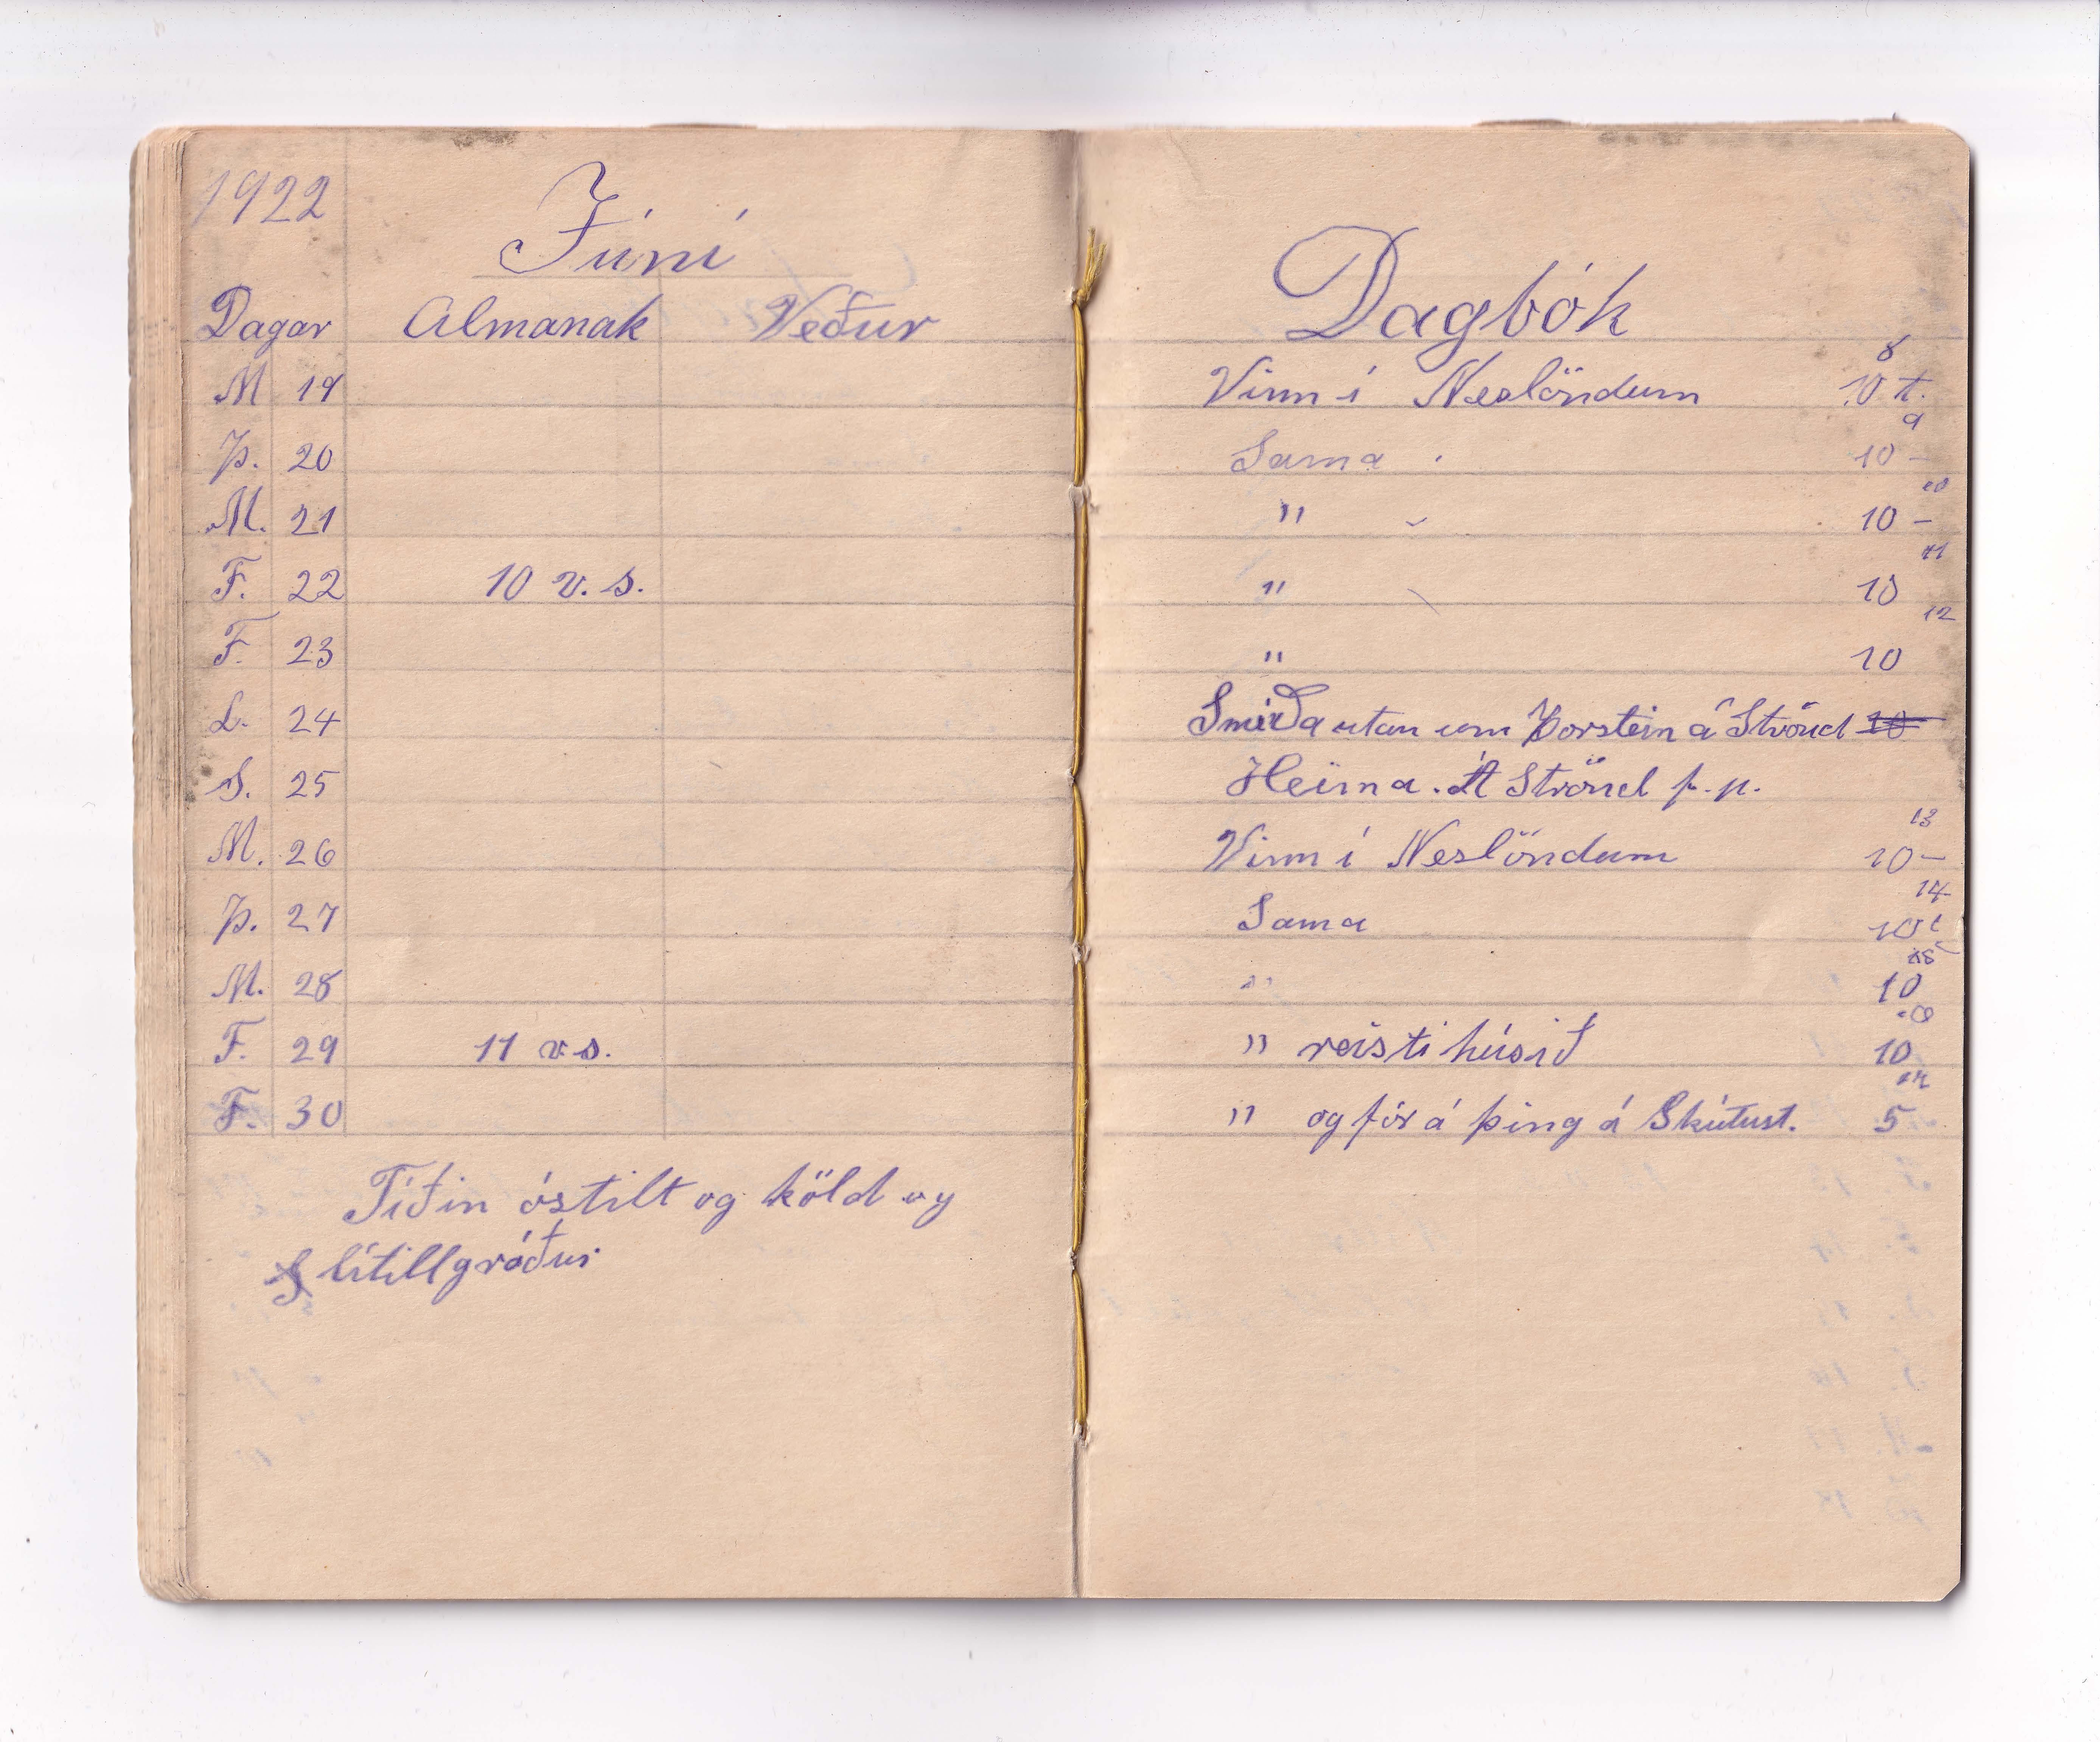 1922
Júní
Dagar Almanak Veður
M 19
Þ. 20
M. 21
F. 22 10 v. s.
F. 23
L. 24
S. 25
M. 26
Þ. 27
M. 28
F. 29 11 v s.
F. 30
Tíðin óstilt og köld og
lítill gróður
Dagbók
8
Vinn í Neslöndum 10 t.
9
Sama 10 -
10
" 10 -
11
" 10
12
" 10
Smíða utan um Þorstein á Strönd 10
Heima. Á Strönd p. p.
13
Vinn í Neslöndum 10 -
14
Sama 10 t
15
" 10
" reisti húsið 10
" og fór á þing á Skútust. 5